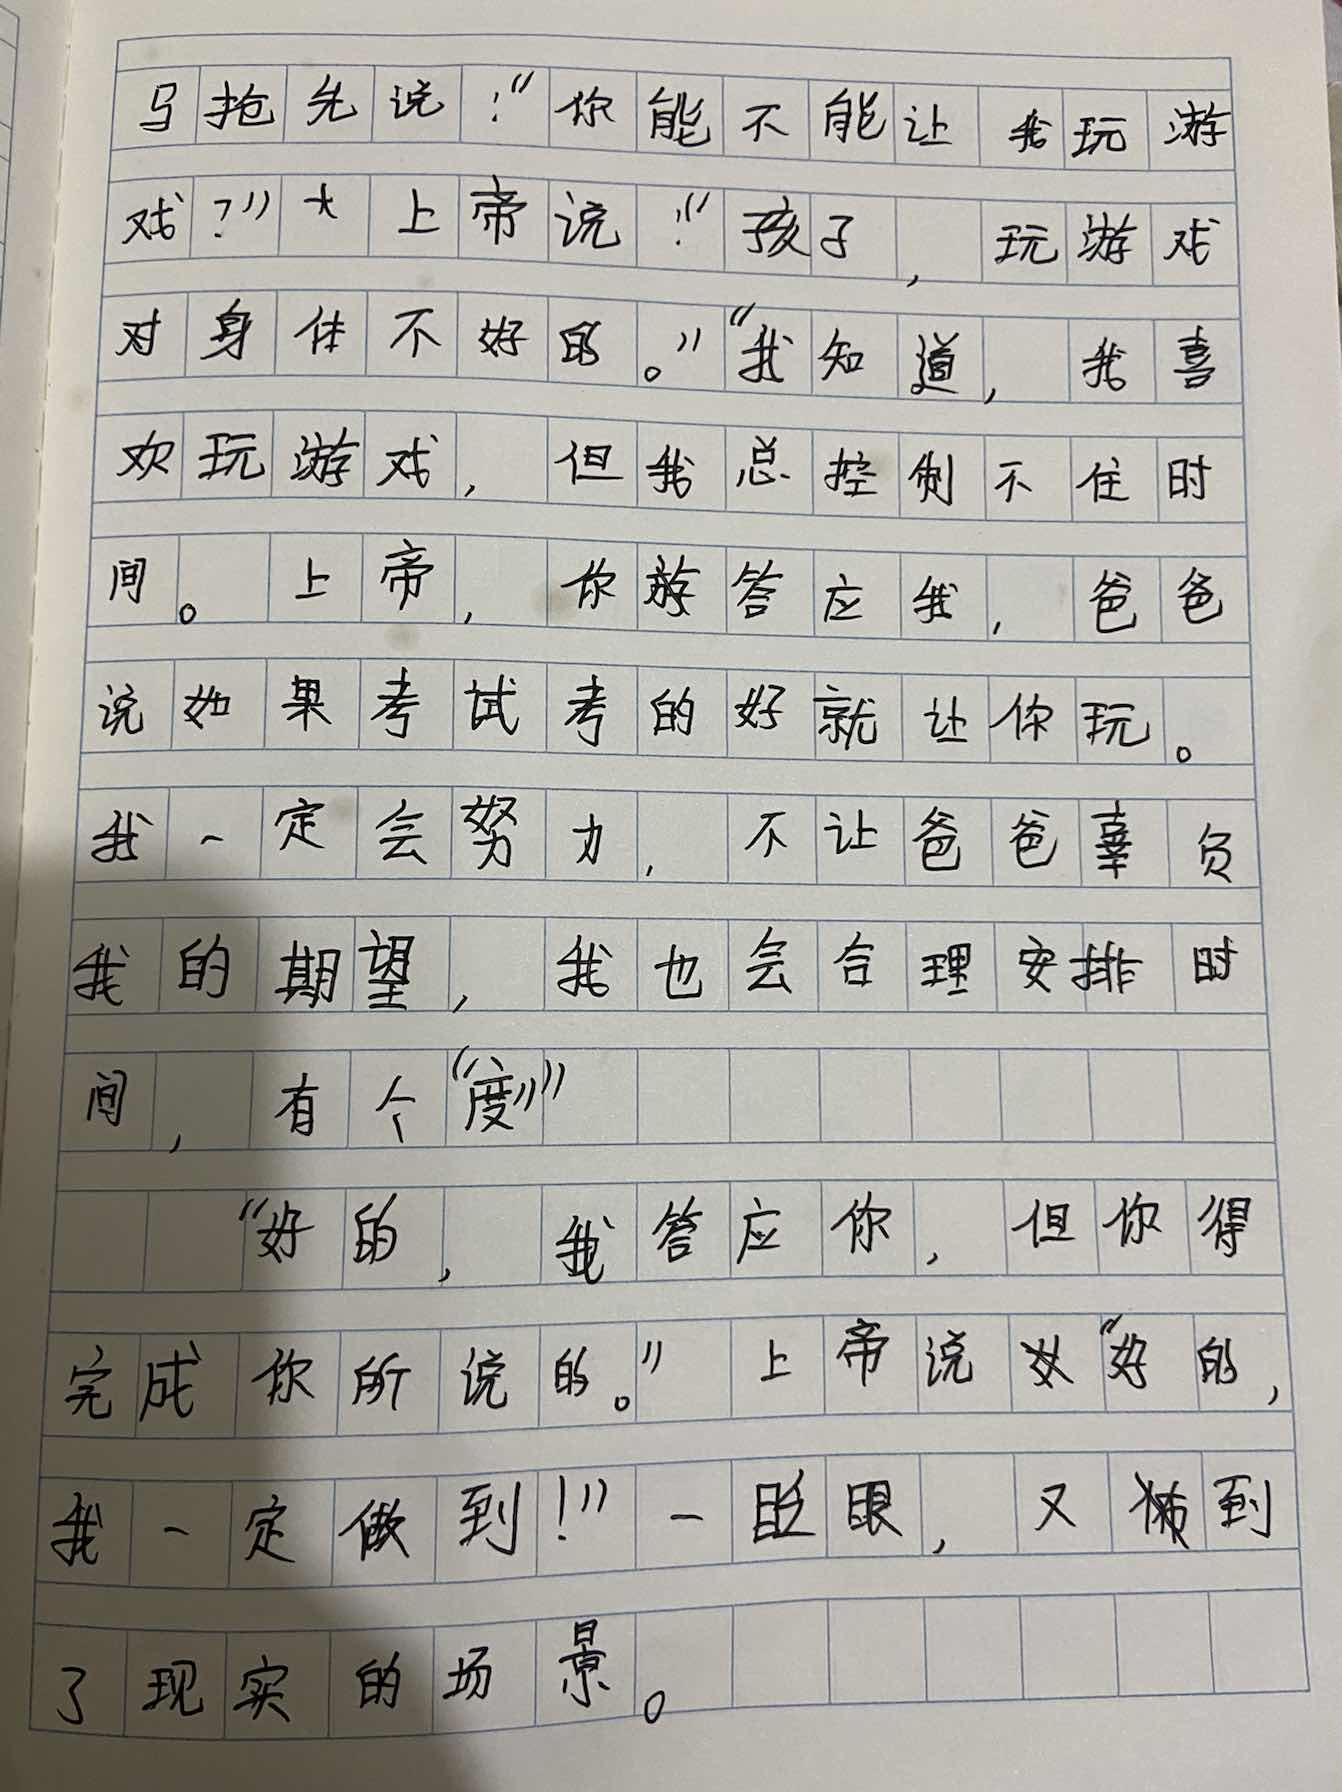 马抢先说：“你能不能让我玩游
戏？”大上帝说：“孩子，玩游戏
对身体不好的。”“我知道，我喜
欢玩游戏，但我总控制不住时
间。上帝，你答应我，爸爸
说如果考试考的好就让你玩。
我一定会努力，不让爸爸辜负
我的期望，我也会合理安排时
间，有个“度”
“好的，我答应你，但你得
完成你所说的。”上帝说“好的，
我一定做到！”一眨眼，又到
了现实的场景。